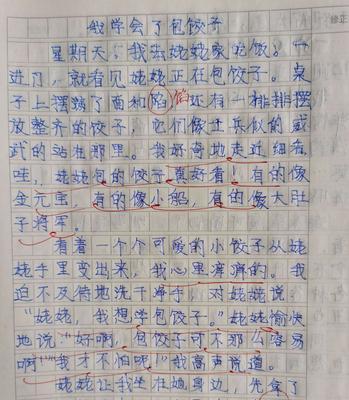 我学会了包饺子
星期天,我去姥姥家吃饭。一
进门,就看见姥姥正在包饺子。桌
子上摆满了面和馅馅还有一排排摆
放整齐的饺子,它们像士兵似的威
武的站在那里。我好奇地走近细看
哇,姥姥包的饺子真好看!有的像
金元宝,有的像小船,有的像大肚
子将军。
看着一个个可爱的小饺子从姥
姥手里变出来,我心里痒痒的。我
迫不及待地洗干净手,对姥姥说:
“姥姥,我想学包饺子。”姥姥愉快
地说:“好啊,包饺子可不那么容易
啊!”“我才不怕呢!”我高声说道。
姥姥让我坐在她身边,先拿了
修正